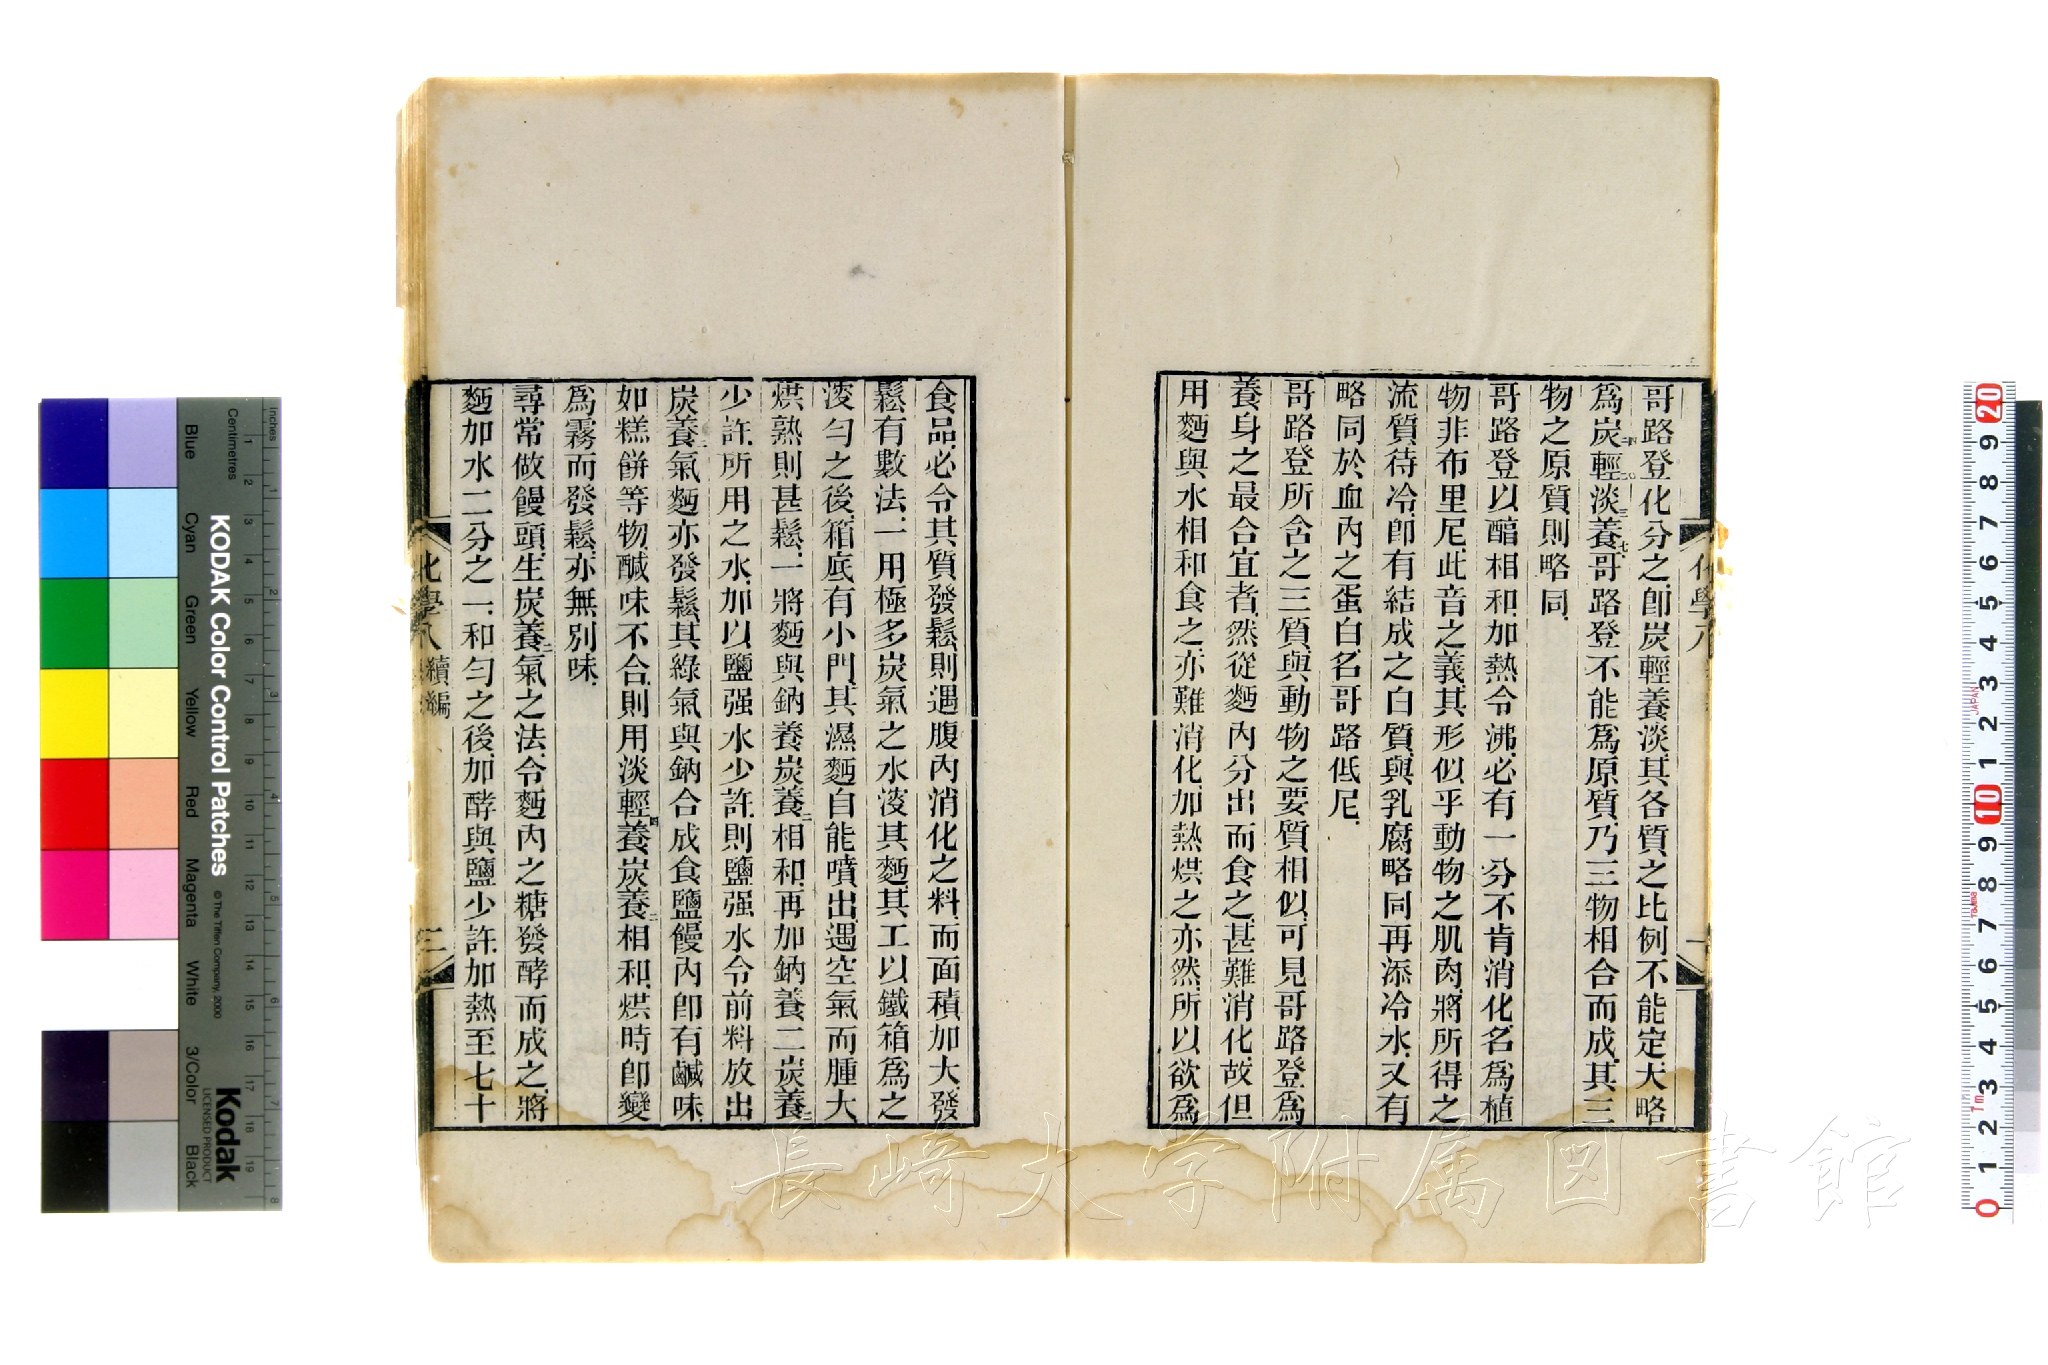 哥路登化分之.卽炭輕養淡.其各質之比例不能定.大略
爲炭輕淡養.哥路登不能爲原質.乃三物相合而成.其三
物之原質則略同.
哥路登以醕相和.加熱令沸.必有一分不肯消化.名爲植
物非布里尼.此音之義.其形似乎動物之肌肉.將所得之
流質待冷.卽有結成之白質.與乳腐略同.再添冷水.又有
略同於血內之蛋白.名哥路低尼.
哥路登所含之三質與動物之要質相似.可見哥路登爲
養身之最合宜者.然從麪內分出而食之.甚難消化.故但
用麪與水相和食之.亦難消化.加熱烘之亦然.所以欲爲
化學八
食品.必令其質發鬆.則遇腹內消化之料.而面積加大.發
鬆有數法.一用極多炭氣之水淩其麪.其工以鐵箱爲之
淩勻之後.箱底有小門.其濕麪自能噴出.遇空氣而腫大
烘熟則甚鬆.一將麪與鈉養炭養二相和.再加鈉養二炭養二
少許.所用之水.加以鹽强水少許.則鹽强水令前料放出
炭養二氣.麪亦發鬆.其綠氣與鈉合成食鹽.饅內卽有鹹味.
如糕餅等物.鹹味不合.則用淡輕四養炭養二相和.烘時卽變
爲霧而發鬆.亦無別味.
尋常做饅頭.生炭養二氣之法.令麪內之糖發酵而成之.將
麪加水二分之一.和勻之後.加酵與鹽少許.加熱至七十
化學八 續編
二
長崎大学附属図書館
KODAK Color Control Patches
© The Tiffen Company, 2000
Kodak
LICENSED PRODUCT
Inches
Centimetres
Blue
Cyan
Green
Yellow
Red
Magenta
White
3/Color
Black
1 2 3 4 5 6 7 8 9 10 11 12 13 14 15 16 17 18 19
20 9 8 7 6 5 4 3 2 1 10 9 8 7 6 5 4 3 2 1 0
JAPAN